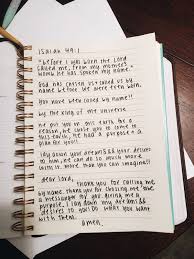 ISAIAH 49:1
"before I was born the Lord
called me, from my mother's
womb he has spoken my name."
God has called us
name before we were even born.
You have been called by name!!
by the king of the universe
for a
reason, he chose you to come to
this earth, he had a purpose & a
plan for you!!
lay down your dreams && your desires
to him, he can do so much more
than you can imagine!!
dear lord,
thank you for calling me
by name. thank you for choosing me
a messenger for you. giving me a
purpose. I lay down my dreams &&
desires to you. DO what you want
with them.
amen.